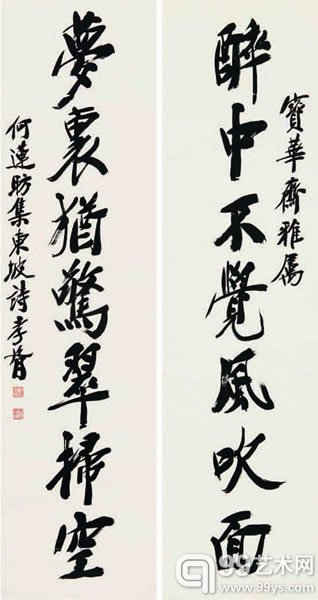 寶華齋雅屬
醉中不覺風吹面
夢裏猶驚翠掃空
何蓮昉集東坡詩孝胥
99艺术网
www.99ys.com